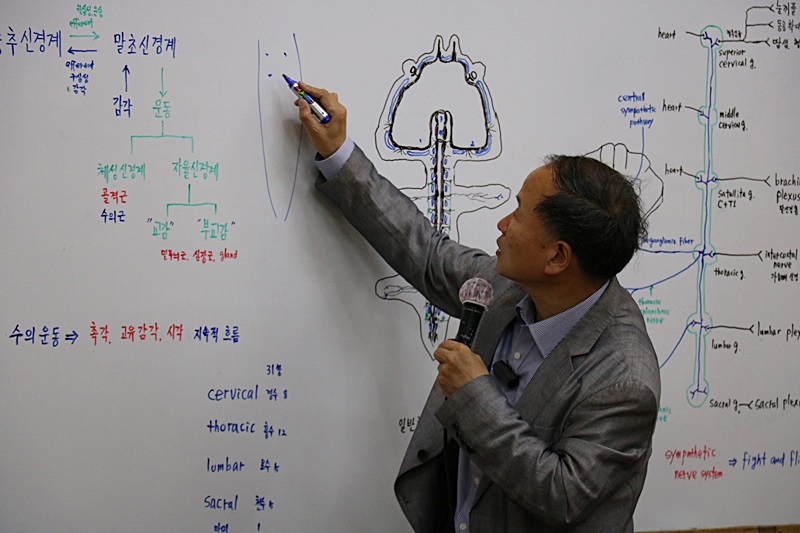 추신경계
말초신경계
감각
감각
운동
체성신경계
자율신경계
골격근
수의근
"교감"
"부교감"
민무늬근, 심장근, gland
수의 운동 ⇒ 촉각, 고유감각, 시각 지속적 흐름
31쌍
cervical 경수 8
thoracic 흉수 12
lumbar 요수 5
sacral 천수 5
1
1
2
일반
central
sympathetic
pathway
ganglionic fiber
thoracic
splanchnic
nerve
heart
superior
cervical g.
heart
middle
cervical g.
heart
satellite g.
C+T1
brachi
plexus
thoracic g.
intercostal
nerve
lumbar g.
lumbar plex
sacral g.
sacral plex
sympathetic
nerve system
⇒ fight and fli